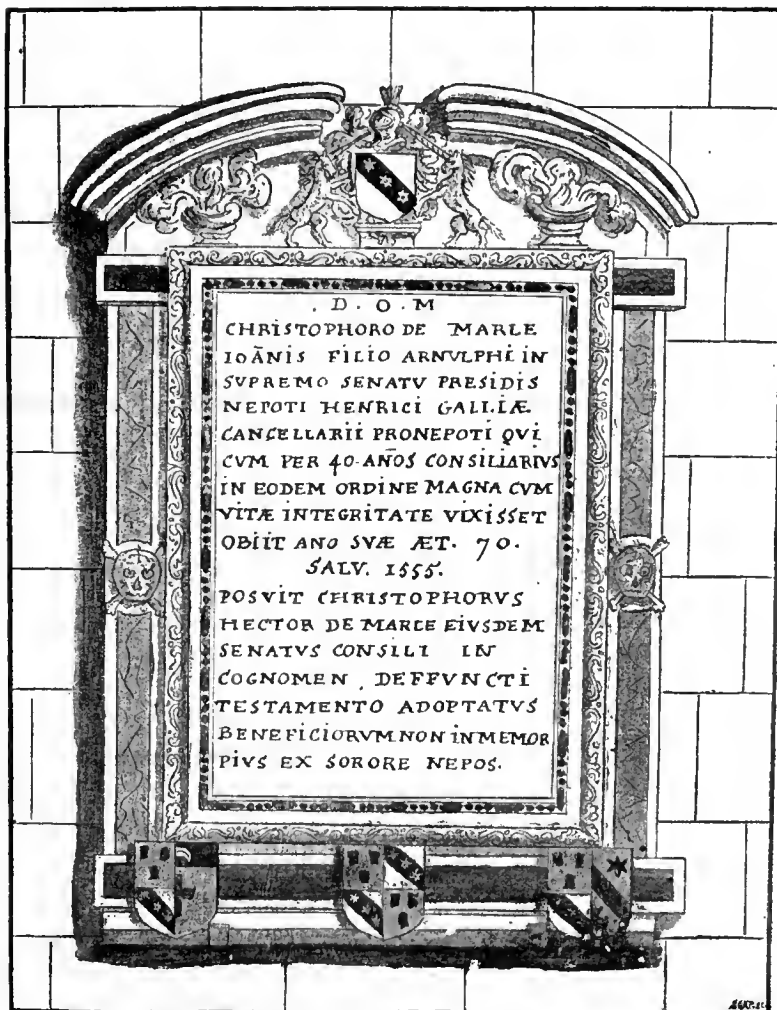 . D . O . M
CHRISTOPHORO DE MARLE
IOĀNIS FILIO ARNVLPHI IN
SVPREMO SENATV PRESIDIS
NEPOTI HENRICI GALLIÆ
CANCELLARII PRONEPOTI QVI
CVM PER 40 AÑOS CONSILIARIVS
IN EODEM ORDINE MAGNA CVM
VITÆ INTEGRITATE VIXISSET
OBIIT ANO SVÆ ÆT. 70.
SALV. 1555.
POSVIT CHRISTOPHORVS
HECTOR DE MARLE EIVSDEM
SENATVS CONSILI IN
COGNOMEN . DEFFVNCTI
TESTAMENTO ADOPTATVS
BENEFICIORVM NON INMEMOR
PIVS EX SORORE NEPOS.